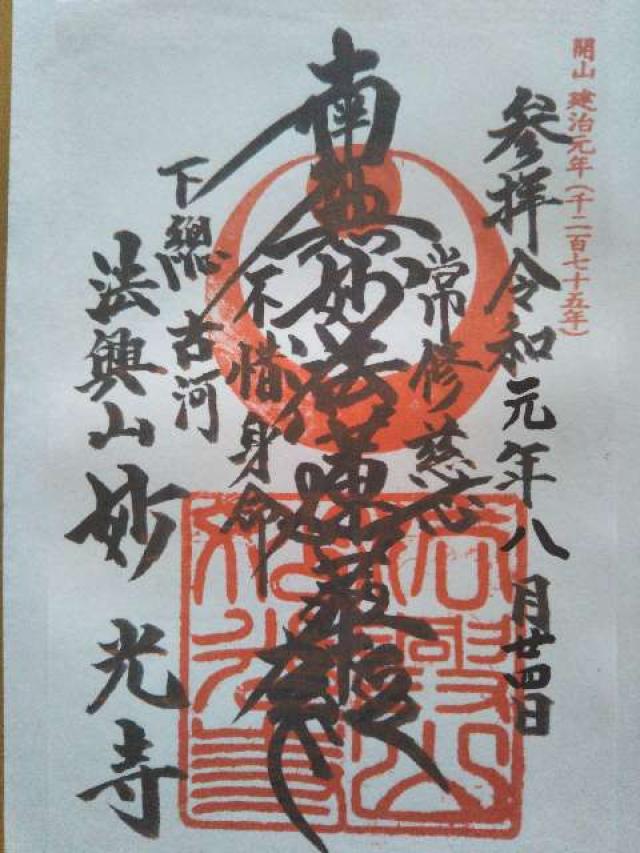 開山 建治元年(千二百七十五年)
参拝 令和元年八月廿四日
常修慈
南無妙法蓮華経
不惜身命
下總 古河
法興山 妙光寺